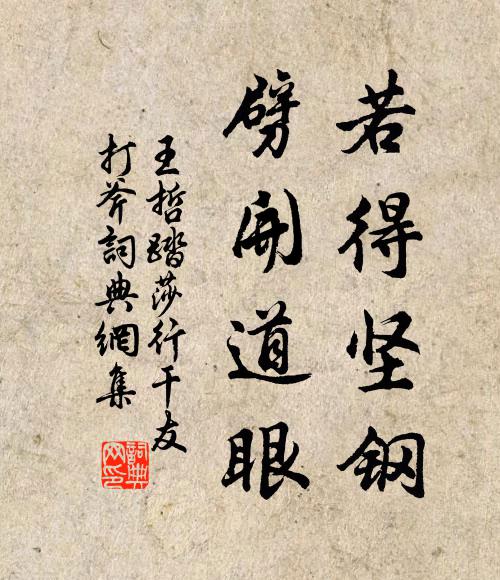 若得坚钢
劈开道眼
王哲踏莎行干友
打斧詞典網集
詞典网印